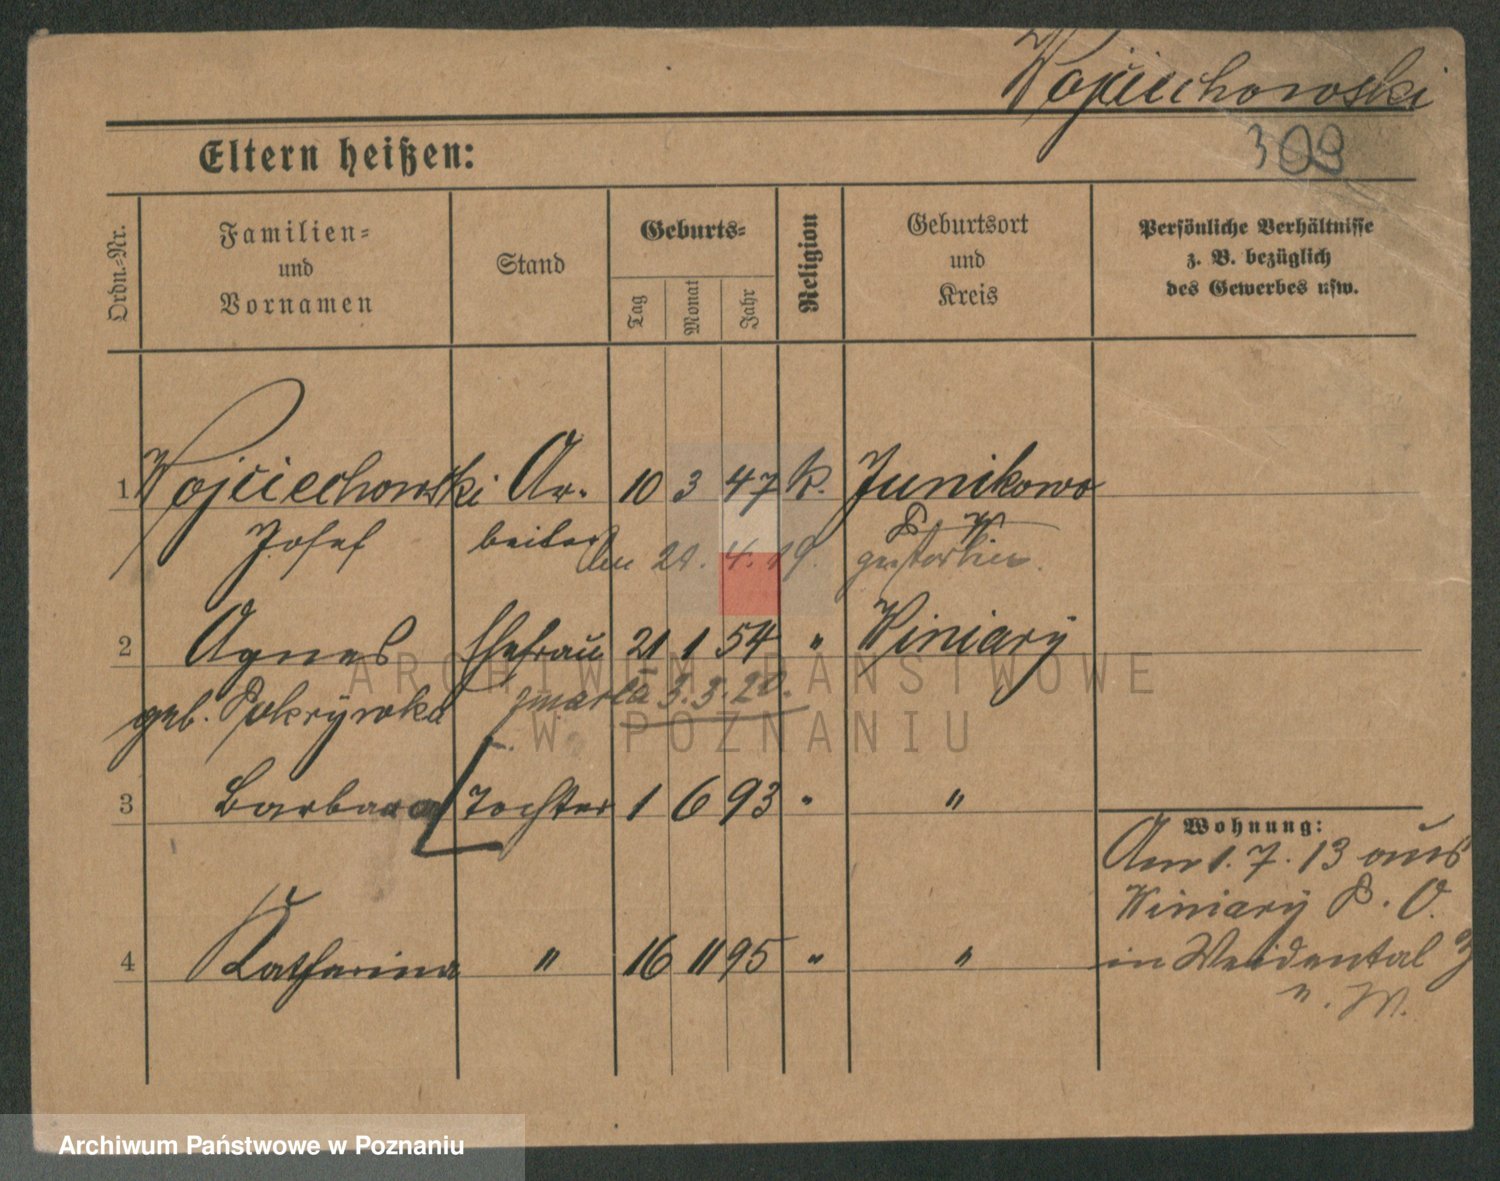 Wojciechowski
309
Eltern heißen:
Ordn.-Nr.
Familien- und Vornamen
Stand
Geburts-
Tag
Monat
Jahr
Religion
Geburtsort und Kreis
Persönliche Verhältnisse
z. B. bezüglich
des Gewerbes usw.
1 Wojciechowski Ar- 10 3 47 k. Junikowo
Josef beiter P. W.
den 21. 4. 19. gestorben.
2 Agnes Ehefrau 21 1 54 " Winiary
geb. Pokrywka zmarła 3. 3. 20.
3 Barbara Tochter 1 6 93 " "
4 Katharina " 16 11 95 " "
Wohnung:
Am 1. 7. 13 aus
Winiary P. O.
in Weidental
ARCHIWUM PAŃSTWOWE
W POZNANIU
Archiwum Państwowe w Poznaniu